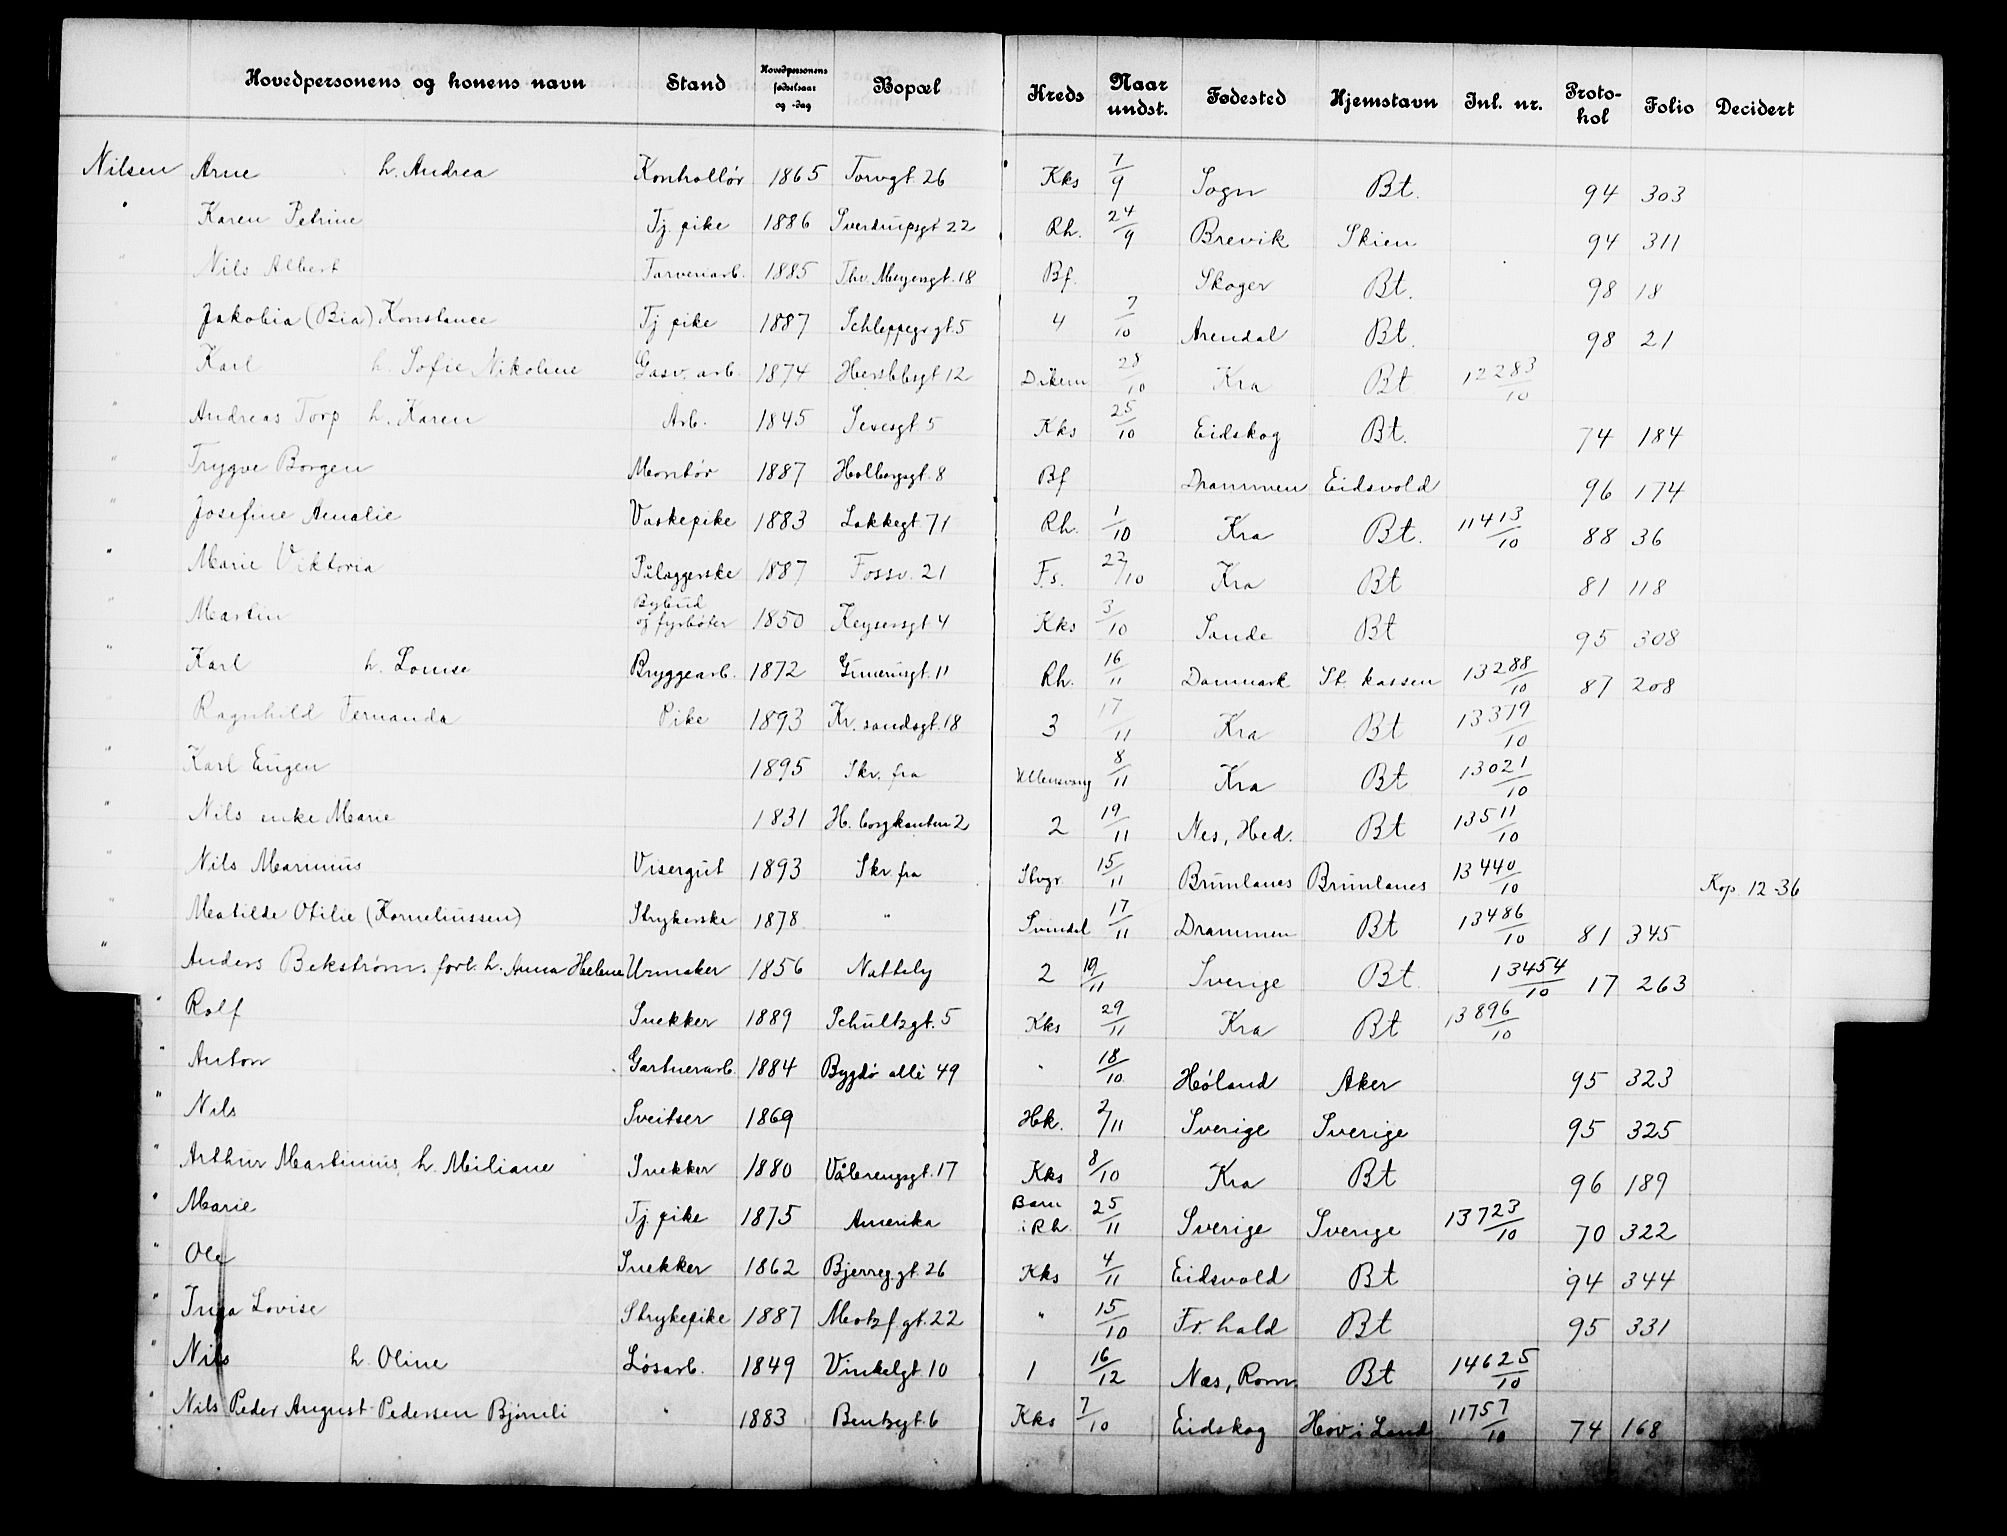 Hovedpersonens og konens navn Stand Hovedpersonens fødselsaar og -dag Bopæl Kreds Naar undst. Fødested Hjemstavn Inl. nr. Protokol Folio Decidert
Nilsen Arne h. Andrea Kontrollør 1865 Torvgt. 26 Kks 7/9 Sogn Bt. 94 303
" Karen Petrine Tj. pike 1886 Sverdrupsgt 22 Rh. 24/9 Brevik Skien 94 311
" Nils Albert Farveriarb. 1885 Thv. Meyersgt. 18 Bf. Skoger Bt. 98 18
Jakobia (Bia) Konstance Tj pike 1887 Schleppegr gt. 5 4 7/10 Arendal Bt. 98 21
Karl h. Sofie Nikoline Gasv. arb. 1874 Herslebsgt 12 Dikem 28/10 Kra Bt 12283/10
" Andreas Torp h. Karen Arb. 1845 5 Kks 25/10 Eidskog Bt. 74 184
" Trygve Borgen Montør 1887 Holbergsgt. 8 Bf Drammen Eidsvold 96 174
" Josefine Amalie Vaskepike 1883 Lakkegt. 71 Rh. 1/10 Kra Bt. 11413/10 88 36
" Marie Viktoria Pålæggerske 1887 Fossv. 21 F.s. 22/10 Kra Bt 81 118
" Martin Bybud og fyrbøter 1850 Keysersgt. 4 Kks 3/10 Sande Bt 95 308
" Karl h. Louise Bryggearb. 1872 11 Rh. 16/11 Danmark St. kassen 13288/10 87 208
Ragnhild Fernanda Pike 1893 Kr. sandsgt. 18 3 17/11 Kra Bt 13379/10
" Karl Eugen 1895 Skr. fra Ullensvang 8/11 Kra Bt 13021/10
" Nils enke Marie 1831 H. borgkanten 2 2 19/11 Nes, Hed. Bt 13511/10
" Nils Marinius Visergut 1893 Skr. fra Stvgr 15/11 Brunlanes Brunlanes 13440/10 Kop. 12-36
" Matilde Otilie (Korneliussen) Strykerske 1878 " Svindal 17/11 Drammen Bt 13486/10 81 345
" Anders Bekstrøm. forl. h. Anna Helene Urmaker 1856 Nattely 2 19/11 Sverige Bt. 13454/10 17 263
" Rolf Snekker 1889 Schultzgt. 5 Kks 29/11 Kra Bt 13896/10
" Anton Gartnerarb. 1884 Bygdø allé 49 " 18/10 Høland Aker 95 323
" Nils Sveitser 1869 Hk. 2/11 Sverige Sverige 95 325
" Arthur Martinius, h. Miliane Snekker 1880 Vålerengsgt. 17 Kks 8/10 Kra Bt 96 189
" Marie Tj pike 1875 Amerika Barn i Rh. 25/11 Sverige Sverige 13723/10 70 322
" Ole Snekker 1862 Bjerreg. gt. 26 Kks 4/11 Eidsvold Bt 94 344
" Inga Lovise Strykepike 1887 Motzf. gt. 22 " 15/10 Fr. hald Bt 95 331
" Nils h. Oline Løsarb. 1849 Vinkelgt. 10 1 16/12 Næs, Rom. Bt 14625/10
" Nils Peder August Pedersen Bjørnli " 1883 Bentzegt. 6 Kks 7/10 Eidskog Hov i Land 11757/10 74 168